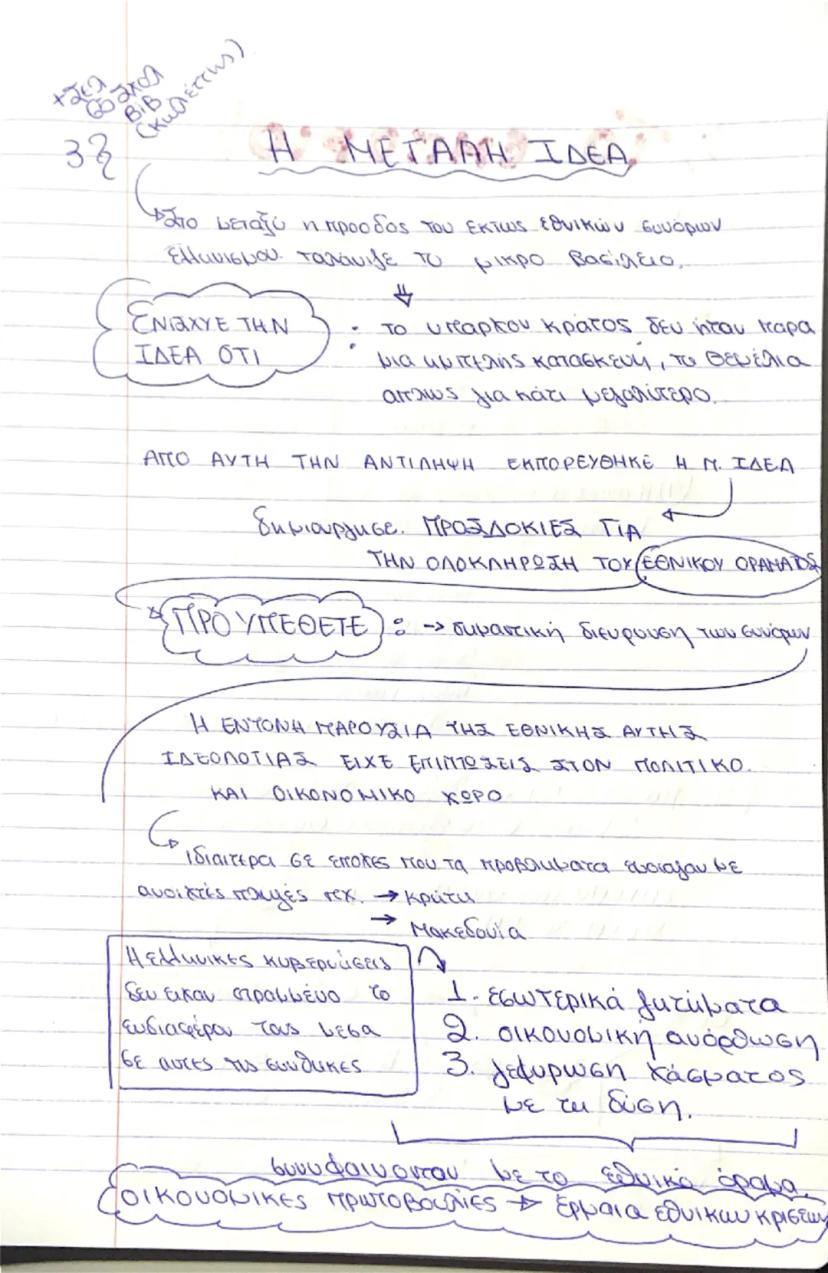 +Σελ
60 Σχολ
Βιβ
(κωλέττης)
3}
Η ΜΕΓΑΛΗ ΙΔΕΑ
Στο μεταξύ η προοδος του εκτως εθνικών συνόρων
Ελληνισμου ταλάνιζε το μικρο βασίλειο.
ΕΝΙΣΧΥΕ ΤΗΝ ΙΔΕΑ ΟΤΙ : το υπαρχον κρατος δεν ήταν παρα
μια ημιτελής κατασκευή, τα θεμέλια
απλως για κάτι μεγαλύτερο.
ΑΠΟ ΑΥΤΗ ΤΗΝ ΑΝΤΙΛΗΨΗ ΕΚΠΟΡΕΥΘΗΚΕ Η Μ. ΙΔΕΑ
δημιουργησε ΠΡΟΣΔΟΚΙΕΣ ΓΙΑ
ΤΗΝ ΟΛΟΚΛΗΡΩΣΗ ΤΟΥ ΕΘΝΙΚΟΥ ΟΡΑΜΑΤΟΣ
ΠΡΟΥΠΕΘΕΤΕ : → σημαντική διευρυνση των συνόρων
Η ΕΝΤΟΝΗ ΠΑΡΟΥΣΙΑ ΤΗΣ ΕΘΝΙΚΗΣ ΑΥΤΗΣ
ΙΔΕΟΛΟΓΙΑΣ ΕΙΧΕ ΕΠΙΠΤΩΣΕΙΣ ΣΤΟΝ ΠΟΛΙΤΙΚΟ
ΚΑΙ ΟΙΚΟΝΟΜΙΚΟ ΧΩΡΟ
ιδιαιτερα σε εποχες που τα προβληματα εμοιαζαν με
ανοιχτές πληγές πχ. → Κρήτη
→ Μακεδονία
Η ελληνικες κυβερνήσεις
δεν ειχαν στραμμένο το
ενδιαφέρον τους μεσα
σε αυτες τις συνθηκες
1. εσωτερικά ζητήματα
2. οικονομική ανόρθωση
3. γεφυρωση χάσματος
με τη δύση.
συνυφαινονταν με το εθνικό όραμα.
οικονομικες πρωτοβουλίες → έρμαια εθνικων κρισεων